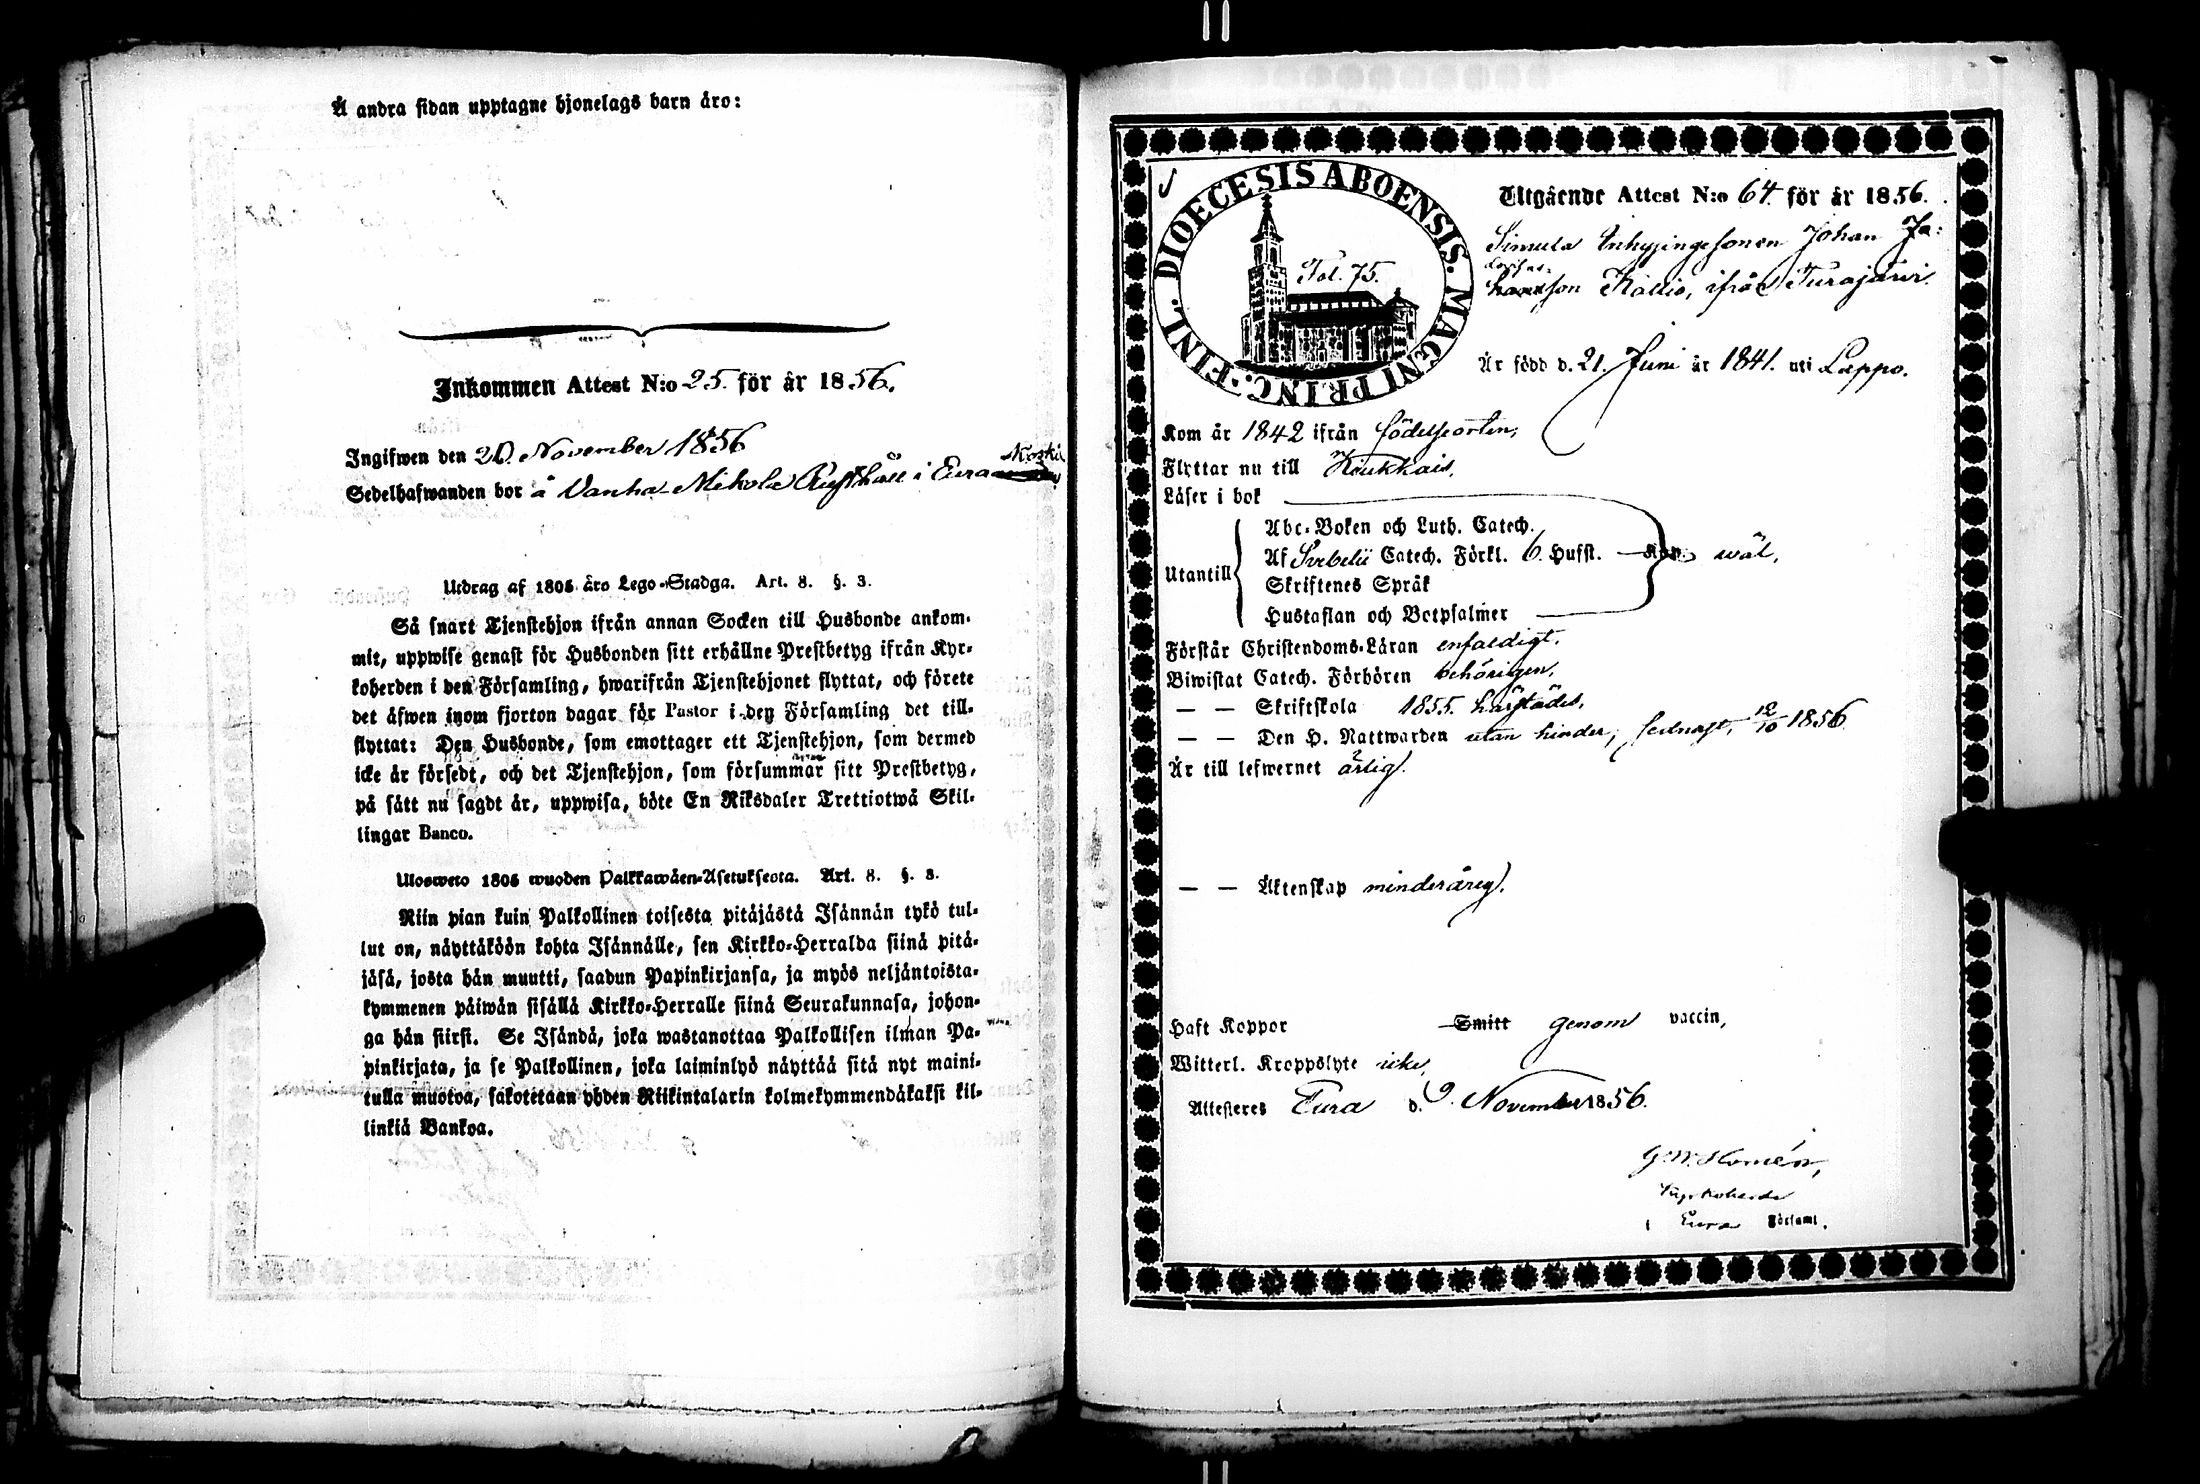 Å andra sidan upptagne hjonelags barn äro:
Inkommen Attest N:o 25. för år 1856.
Ingifwen den 20. November 1856
Sedelhafwanden bor å Vanha-Mikola Rusthåll i Eura
Utdrag af 1805 års Lego-Stadga. Art. 8. §. 3.
Så snart Tjenstehjon ifrån annan Socken till Husbonde ankom-
mit, uppwise genast för Husbonden sitt erhållne Prestbetyg ifrån Kyr-
koherden i den Församling, hwarifrån Tjenstehjonet flyttat, och förete
det äfwen inom fjorton dagar för Pastor i den Församling det till-
flyttat: Den Husbonde, som emottager ett Tjenstehjon, som dermed
icke är försedt, och det Tjenstehjon, som försummar sitt Prestbetyg,
på sätt nu sagdt är, uppwisa, böte En Riksdaler Trettiotwå Skil-
lingar Banco.
Ulosweto 1805 wuoden Palkkawäen-Asetuksesta. Art. 8. §. 3.
Niin pian kuin Palkollinen toisesta pitäjästä Isännän tykö tul-
lut on, näyttäköön kohta Isännälle, sen Kirkko-Herralda siinä pitä-
jäsä, josta hän muutti, saadun Papinkirjansa, ja myös neljäntoista-
kymmenen päiwän sisällä Kirkko-Herralle siinä Seurakunnasa, johon-
ga hän siirsi. Se Isändä, joka wastanottaa Palkollisen ilman Pa-
pinkirjata, ja se Palkollinen, joka laiminlyö näyttää sitä nyt maini-
tulla muotoa, sakotetaan yhden Riikintalarin kolmekymmendäkaksi kil-
linkiä Bankoa.
DIOECESIS ABOENSIS. MAGNI PRINC. FINL.
Fol. 75.
Utgående Attest N:o 64 för år 1856.
Simula Inhysingesonen Johan Ja-
son Kallio, ifrån Turajärvi.
Är född d. 21. Juni år 1841. uti Lappo.
Kom år 1842 ifrån födelseorten,
Flyttar nu till Kiukkais.
Läser i bok
Utantill
Abc-Boken och Luth. Catech.
Af Svebelii Catech. Förkl. 6. Hufst. wäl.
Skriftenes Språk
Hustaflan och Botpsalmer
Förstår Christendoms-Läran enfaldigt.
Biwistat Catech. Förhören behörigen.
— — Skriftskola 1855. härstädes.
— — Den H. Nattwarden utan hinder, sednast, 12/10 1856
Är till lefwernet ärlig.
— — Äktenskap minderårig.
Haft Koppor Smitt genom vaccin,
Witterl. Kroppslyte icke.
Attesteres Eura d. 9. November 1856.
G. W. Homén,
Kyrkoherde
i Eura Församl.